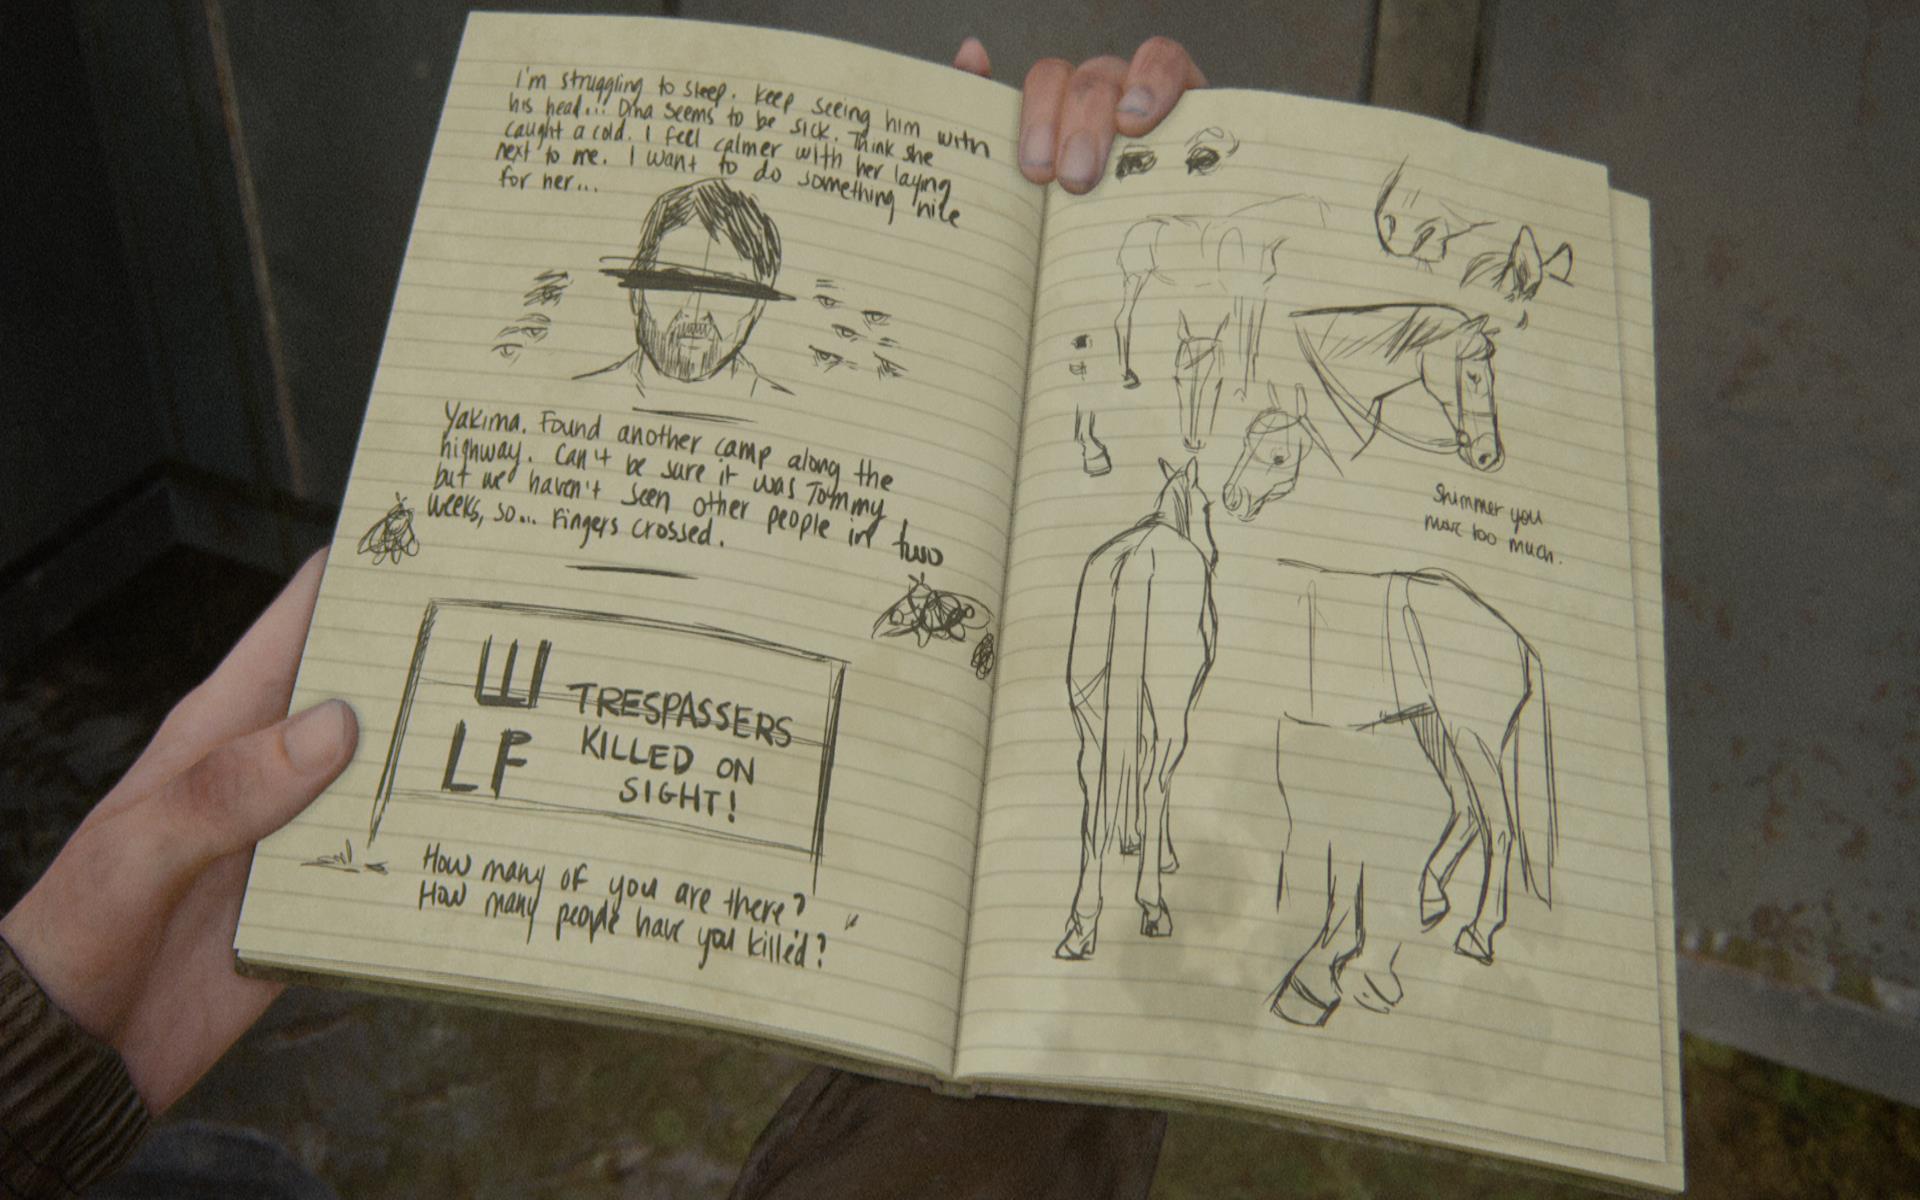 I'm struggling to sleep. Keep seeing him with
his head... Dina seems to be sick. Think she
caught a cold. I feel calmer with her laying
next to me. I want to do something nice
for her...
Yakima. Found another camp along the
highway. Can't be sure it was Tommy
but we haven't seen other people in two
weeks, so... Fingers crossed.
W TRESPASSERS
LF KILLED ON
SIGHT!
How many of you are there?
How many people have you killed?
Shimmer you
move too much.